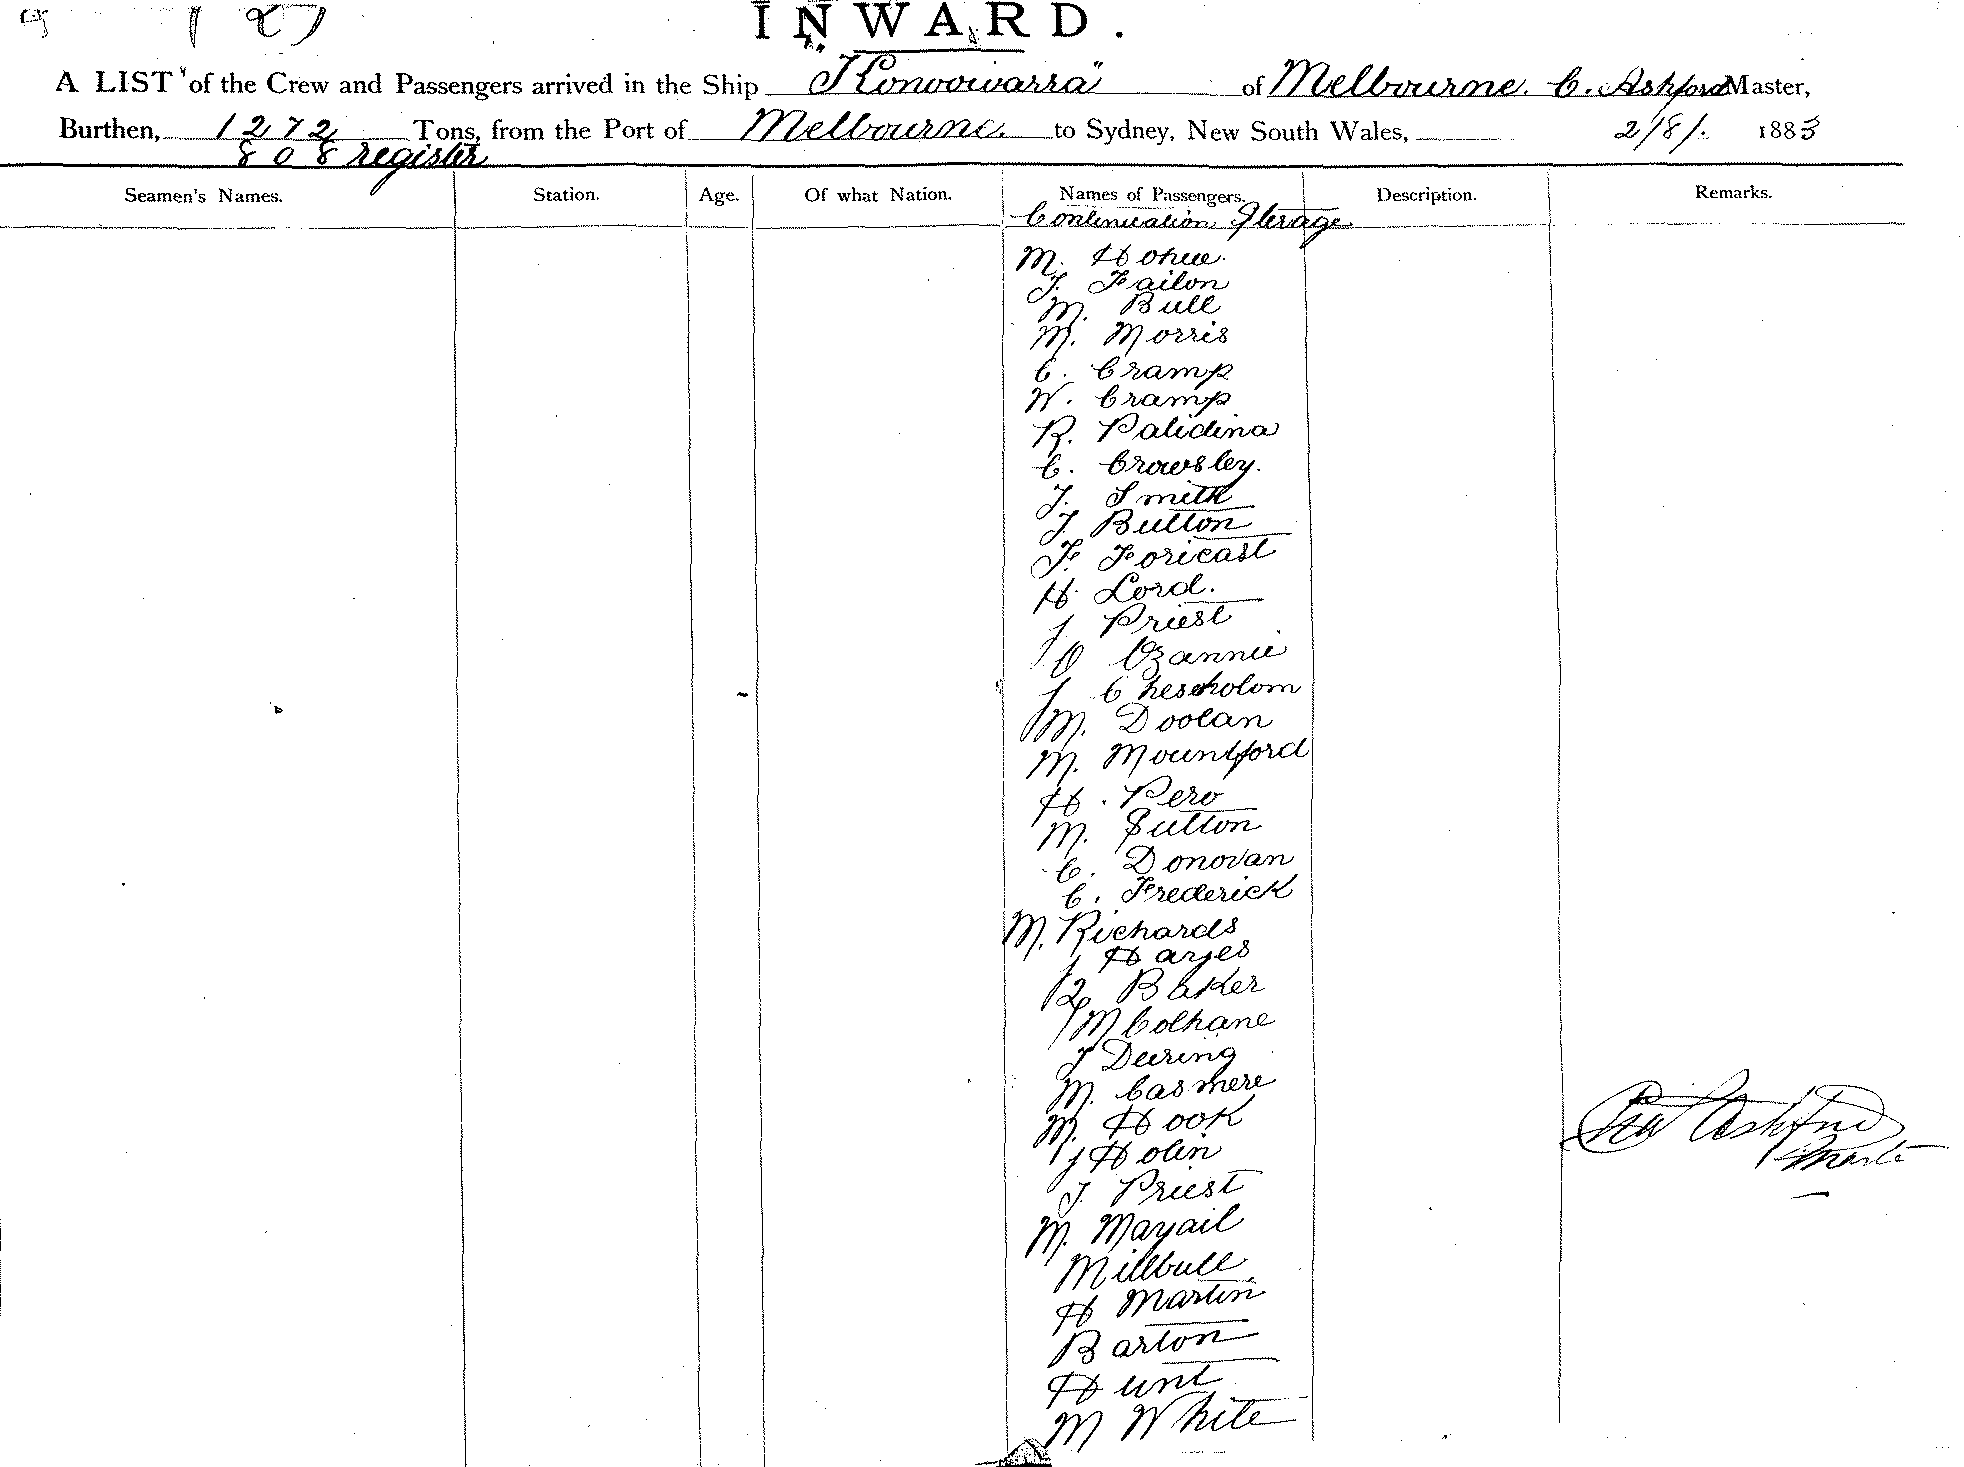 INWARD.
A LIST of the Crew and Passengers arrived in the Ship "Konoowarra" of Melbourne. C. Ashford Master,
Burthen, 1272 Tons, from the Port of Melbourne to Sydney, New South Wales, 2/8/. 1883
808 register
Seamen's Names. Station. Age. Of what Nation. Names of Passengers. Description. Remarks.
Continuation Sterage
M. Hohue.
T. Failon
M. Bull
M. Morris
C. Cramp
W. Cramp
R. Palidina
C. Crowsley.
T. Smith
T Button
F. Foricast
H Lord.
J Priest
O Ozannie
J Chescholom
M. Doolan
M. Mountford
H. Pero
M. Sutton
C. Donovan
C. Frederick
M. Richards
J Hayes
Baker
M Colhane
T Deering
M. Casmere
M. Hook
J Holin
J. Priest
M. Mayail
Millbull
H Martin
Barton
Hunt
M White
Ashford